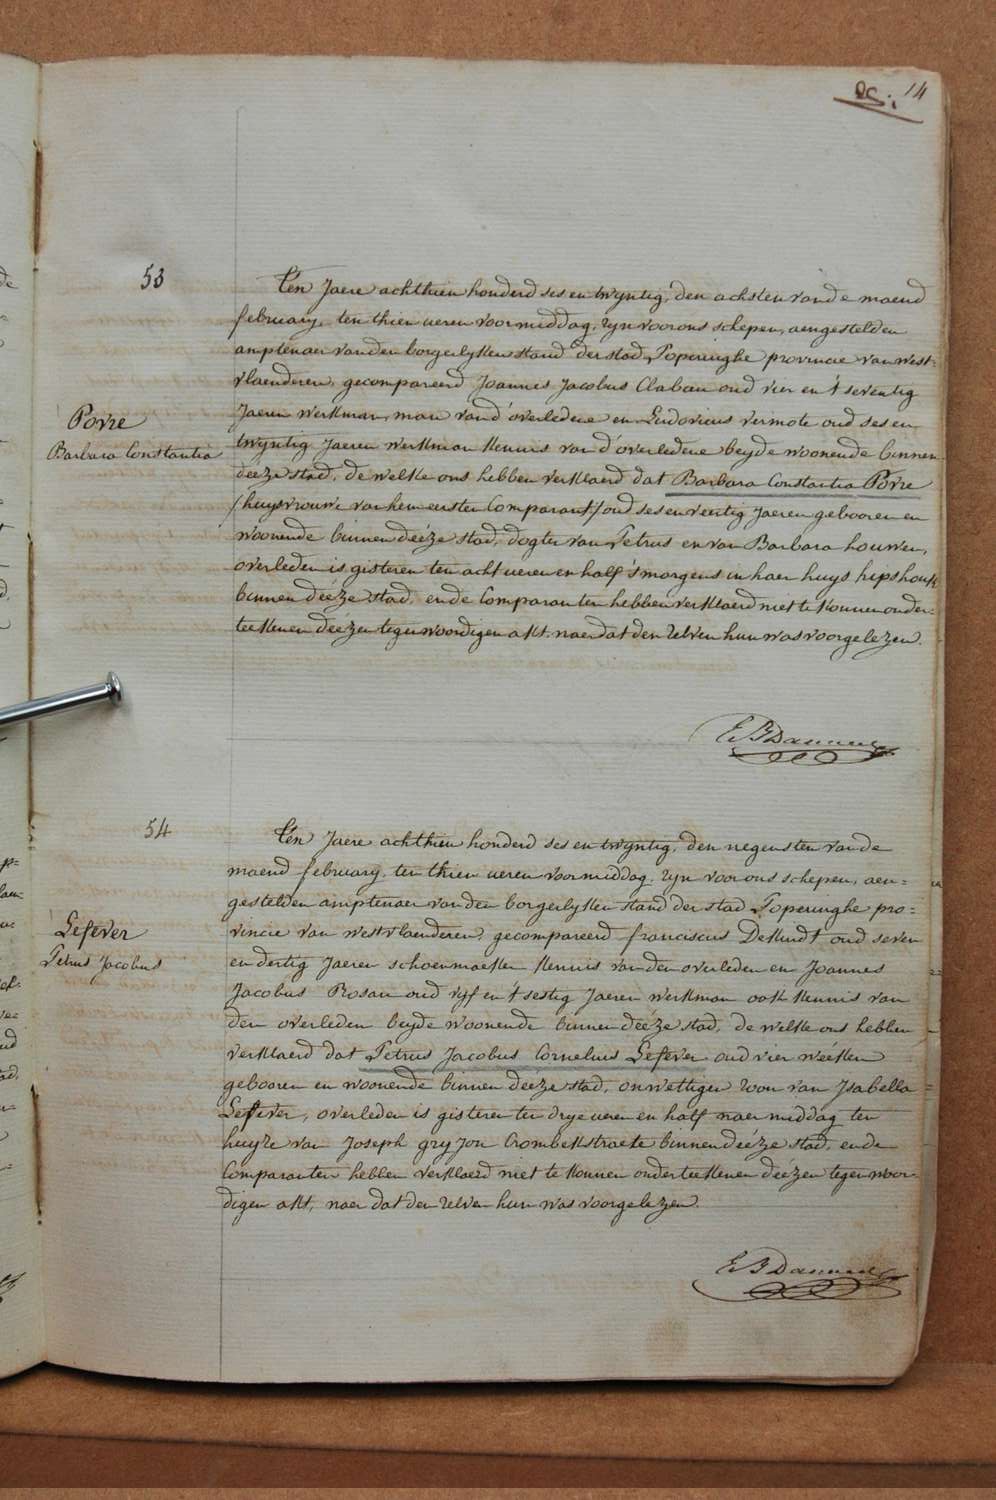 14
53
Povre
Barbara Constantia
Ten Jaere achthien honderd ses en twyntig, den achsten van de maend
february, ten thien ueren voormiddag, zyn voor ons schepen, aengestelden
amptenaer van den borgerlyken stand der stad Poperinghe provincie van west-
vlaenderen, gecompareerd Joannes Jacobus Clabau oud vier en 't seventig
Jaeren werkman, man van d'overledene en Ludovicus vermote oud ses en
twyntig Jaeren werkman kennis van d'overledene beyde woonende binnen
deéze stad, de welke ons hebben verklaerd dat Barbara Constantia Povre
/huysvrouwe van hem eersten Comparant/ oud ses en veertig Jaeren gebooren en
woonende binnen deéze stad, dogter van Petrus en van Barbara houwen,
overleden is gisteren ten acht ueren en half 's morgens in haer huys hipshoek
binnen deéze stad, en de Comparanten hebben verklaerd niet te konnen onder-
teekenen deézen tegenwoordigen akt, naer dat den zelven hun was voorgelezen.
54
Lefever
Petrus Jacobus
Ten Jaere achthien honderd ses en twyntig, den negensten van de
maend february, ten thien ueren voormiddag, zyn voor ons schepen, aen=
gestelden amptenaer van den borgerlyken stand der stad Poperinghe pro=
vincie van westvlaenderen, gecompareerd franciscus Dekindt oud seven
en dertig Jaeren schoenmaeker kennis van den overleden en Joannes
Jacobus Rosau oud vyf en 't sestig Jaeren werkman ook kennis van
den overleden beyde woonende binnen deéze stad, de welke ons hebben
verklaerd dat Petrus Jacobus Cornelius Lefever oud vier weéken
gebooren en woonende binnen deéze stad, onwettigen zoon van Isabella
Lefever, overleden is gisteren ten drye ueren en half naermiddag ten
huyze van Joseph gryson Crombekstraete binnen deéze stad, en de
Comparanten hebben verklaerd niet te konnen onderteekenen deézen tegenwoor-
digen akt, naer dat den zelven hun was voorgelezen.